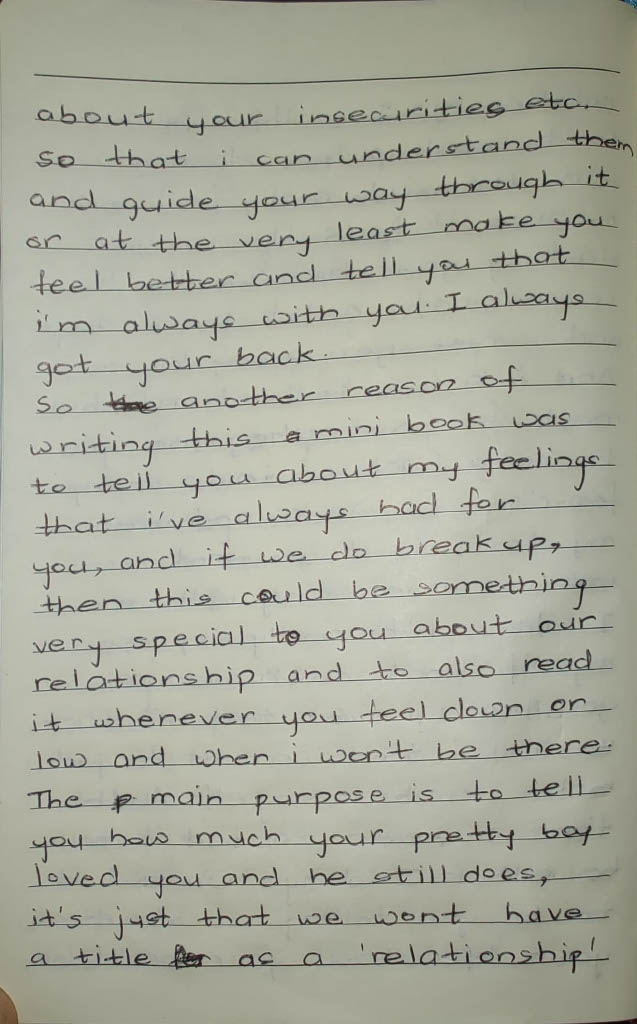 about your insecurities etc.
so that i can understand them
and guide your way through it
or at the very least make you
feel better and tell you that
i'm always with you. I always
got your back.
so another reason of
writing this mini book was
to tell you about my feelings
that i've always had for
you, and if we do break up,
then this could be something
very special to you about our
relationship and to also read
it whenever you feel down or
low and when i won't be there.
The main purpose is to tell
you how much your pretty boy
loved you and he still does,
it's just that we wont have
a title as a 'relationship'